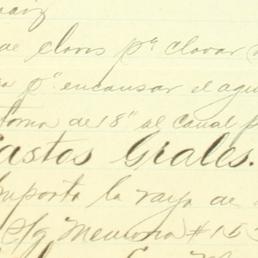 de clavos pa. clavar
pa. encausar el agu
toma de 18" al Canal p
astos Grales.
Importa la raya de
C/g Memoria #153